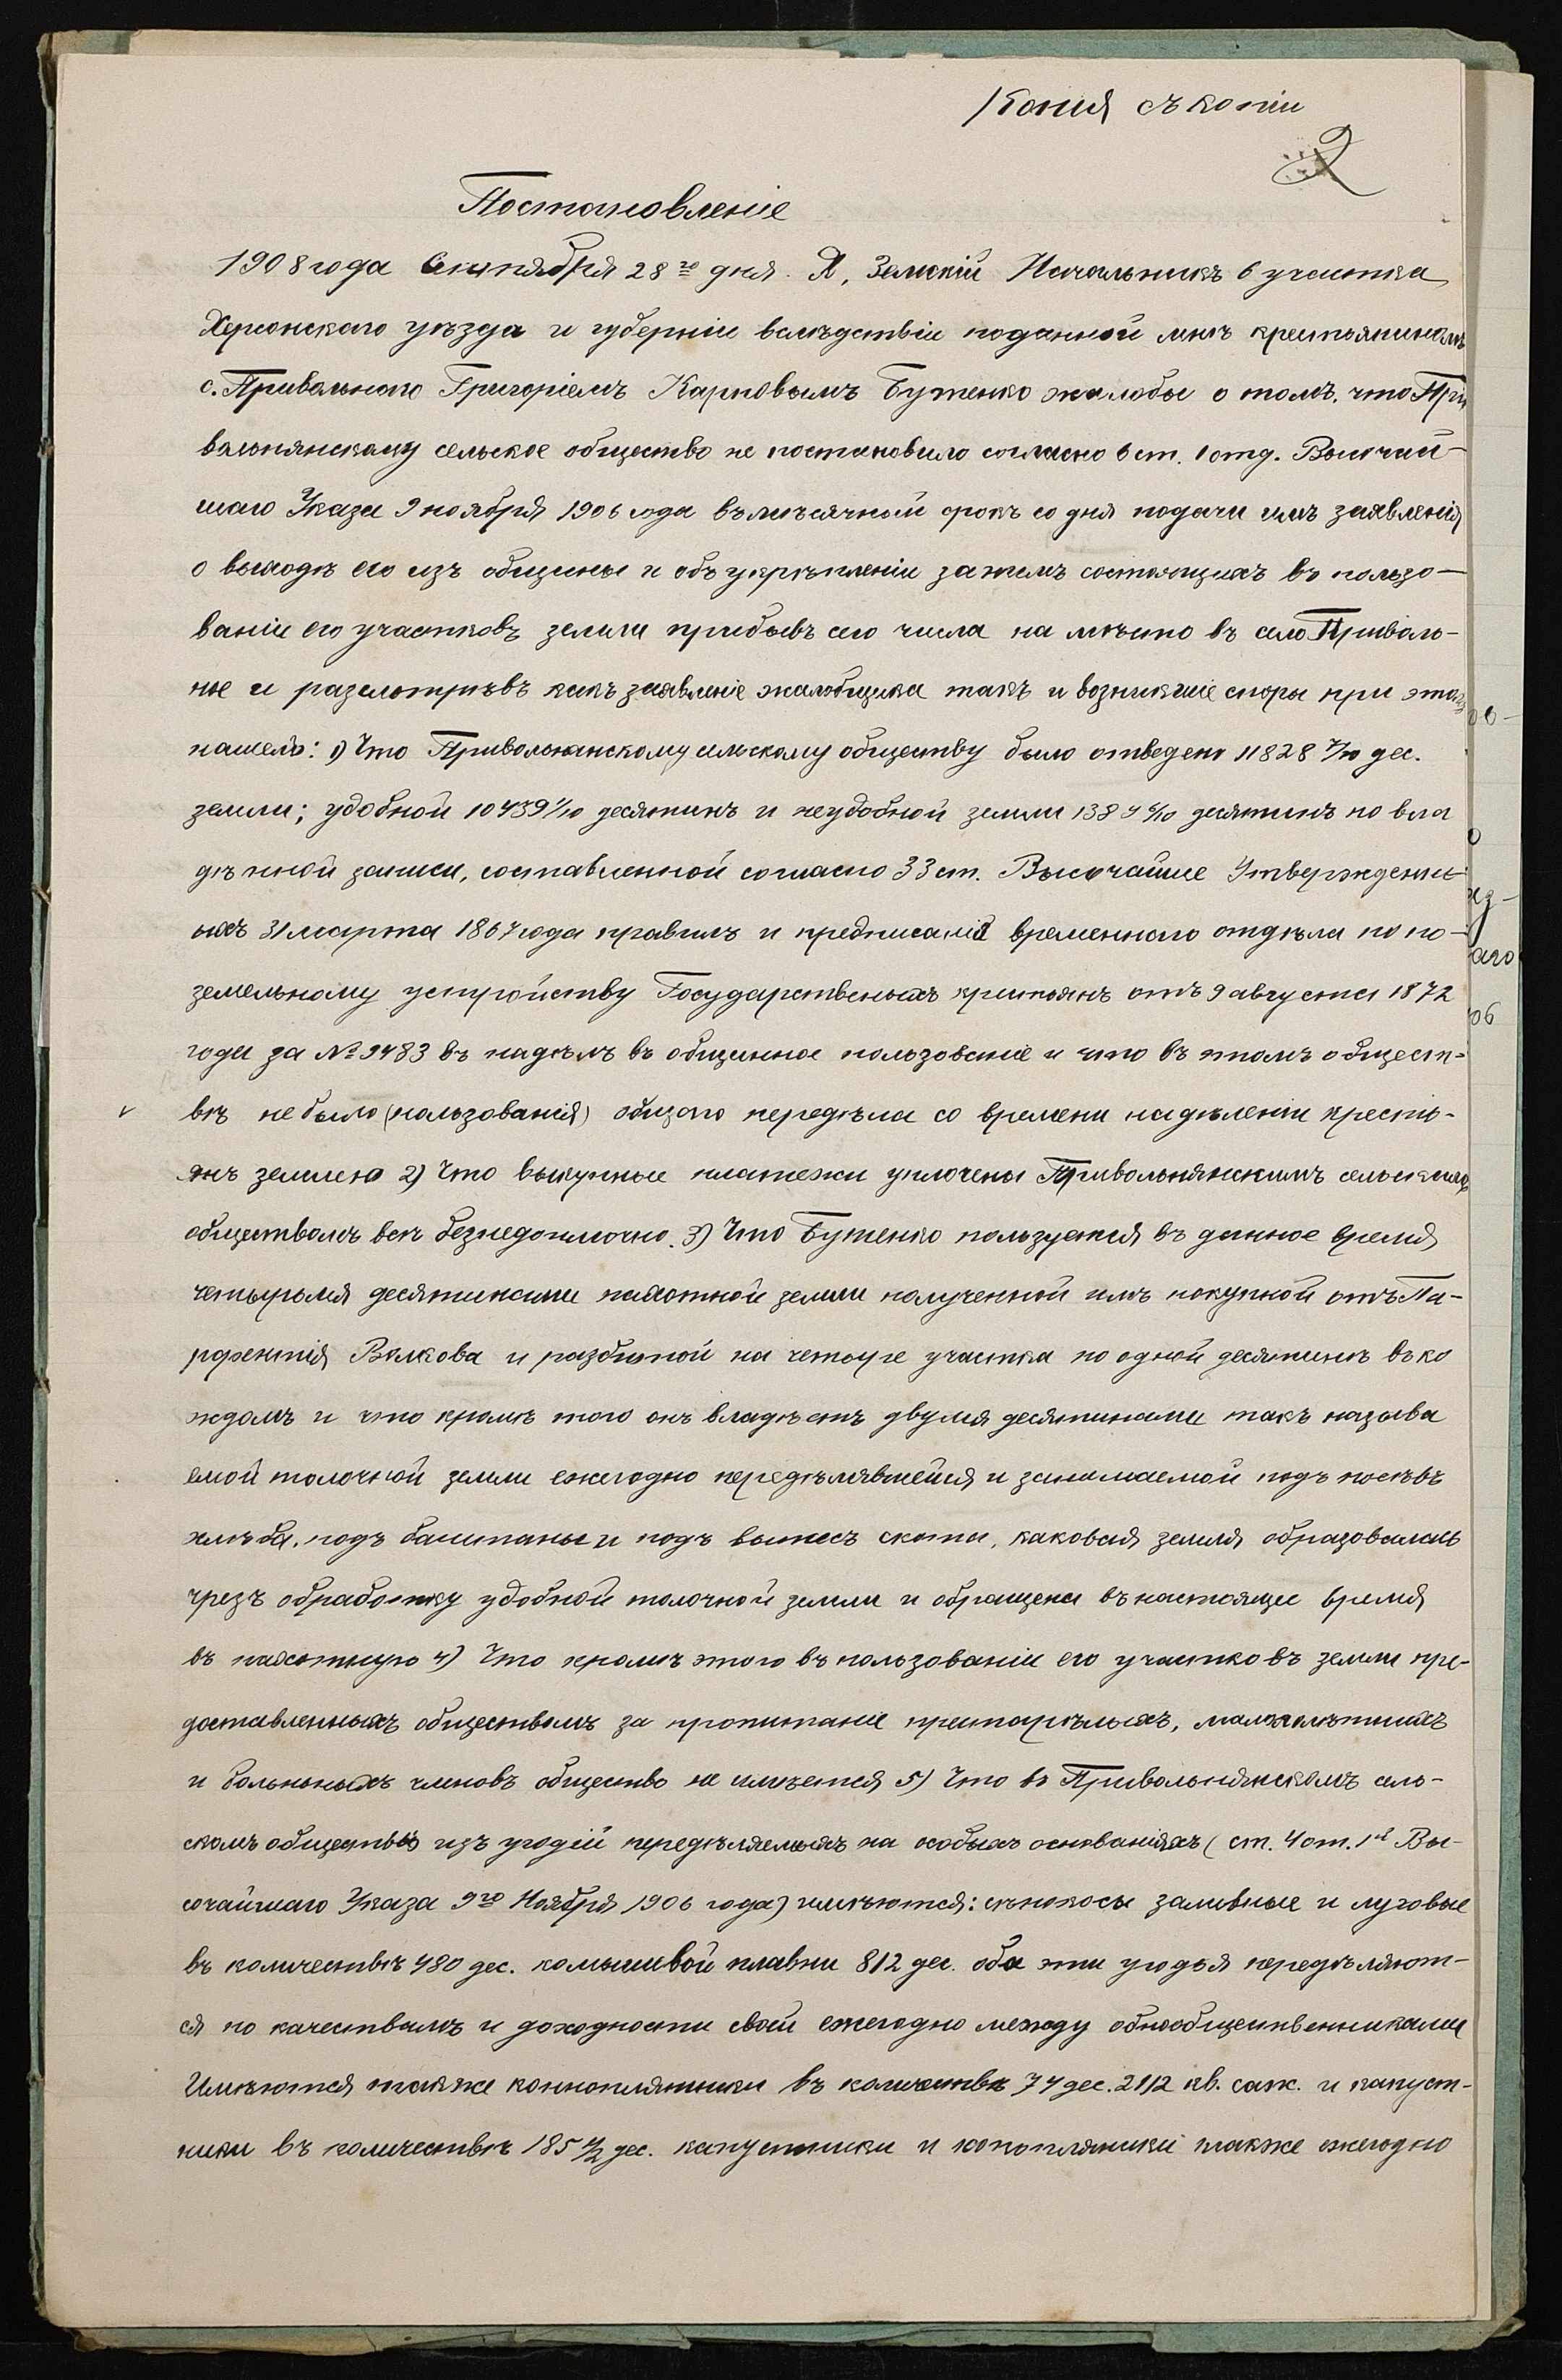 Копия съ копіи
2
Постановленіе
1908 года Сентября 28го дня. Я, Земскій Начальникъ 6 участка
Херсонскаго уѣзда и губерніи вслѣдствіи поданной мнѣ крестьяниномъ
с. Привольнаго Григоріемъ Карповымъ Бутенко жалобы о томъ, что При
вольнянскому сельское общество не постановило согласно 6 ст. 1 отд. Высочай-
шаго Указа 9 ноября 1906 года въ мѣсячный срокъ со дня подачи имъ заявленія
о выходѣ его изъ общины и объ укрѣпленіи за нимъ состоящихъ въ пользо-
ваніи его участковъ земли прибывъ сего числа на мѣсто въ село Приволь-
ное и разсмотрѣвъ какъ заявленіе жалобщика такъ и возникшіе споры при этомъ
нашелъ: 1) Что Привольнянскому сельскому обществу было отведено 11828 7/10 дес.
земли; удобной 10439 1/10 десятинъ и неудобной земли 1389 6/10 десятинъ по вла
дѣнной записи, составленной согласно 33 ст. Высочайше Утвержденн-
ыхъ 31 марта 1867 года правилъ и предписанія временнаго отдѣла по по-
земельному устройству Государственыхъ крестьянъ отъ 9 августа 1872
года за № 9483 въ надѣлъ въ общинное пользованіе и что въ этомъ общест-
v вѣ не было (пользованія) общаго передѣла со времени надѣленія кресть-
янъ землею 2) Что выкупные платежи уплочены Привольнянскимъ сельскимъ
обществомъ всѣ безнедоимочно. 3) Что Бутенко пользуется въ данное время
четырьмя десятинами пахотной земли полученной имъ покупкой отъ Па-
рфентія Волкова и разбитой на четыре участка по одной десятинѣ въ ка
ждомъ и что кромѣ того онъ владѣетъ двумя десятинами такъ называ
емой толочной земли ежегодно передѣлявшейся и занимаемой подъ посѣвъ
хлѣба, подъ баштаны и подъ выпасъ скота, каковая земля образовалась
чрезъ обработку удобной толочной земли и обращена въ настоящее время
въ пахотную 4) Что кромѣ этого въ пользованіи его участковъ земли пре-
доставленныхъ обществомъ за пропитаніе престарѣлыхъ, малолѣтнихъ
и больныхъ членовъ общество не имѣется 5) Что въ Привольнянскомъ сель-
скомъ обществѣ изъ угодій передѣляемыхъ на особыхъ основаніяхъ (ст. 4 от. 1й Вы-
сочайшаго Указа 9го Ноября 1906 года) имѣются: сѣнокосы заливные и луговые
въ количествѣ 480 дес. камышевой плавни 812 дес. оба эти угодья передѣляют-
ся по качествамъ и доходности своей ежегодно между обнообщественниками
Имѣются также коноплянники въ количествѣ 74 дес. 2112 кв. саж. и капуст-
ники въ количествѣ 185 1/2 дес. капустники и коноплянники также ежегодно